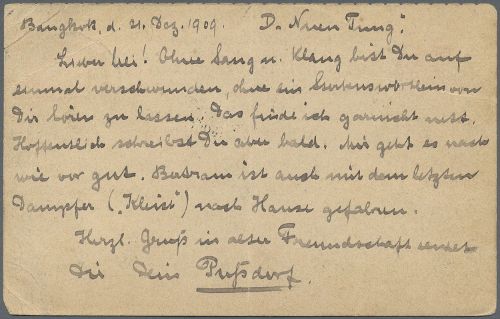 Bangkok, d. 21. Dez. 1909. D. "Nuen Tung".
Lieber Lei! Ohne Sang u. Klang bist Du auf
einmal verschwunden, ohne ein Sterbenswörtlein von
Dir hören zu lassen. Das finde ich garnicht nett.
Hoffentlich schreibst Du aber bald. Mir geht es nach
wie vor gut. Bertram ist auch mit dem letzten
Dampfer ("Kleist") nach Hause gefahren.
Herzl. Gruß in alter Freundschaft sendet
Dir Dein Pußdorf.